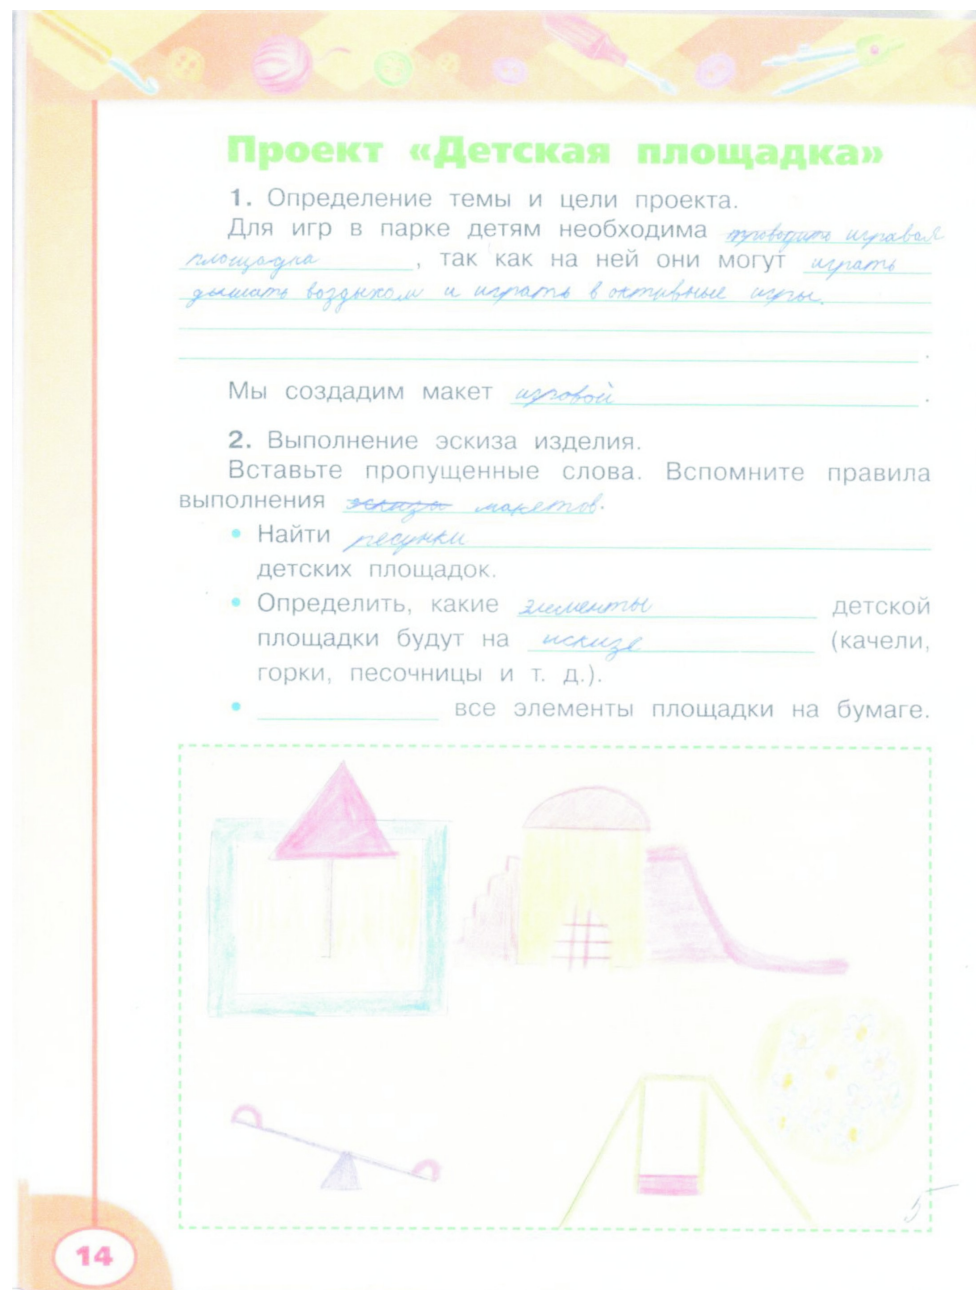 Проект «Детская площадка»
1. Определение темы и цели проекта.
Для игр в парке детям необходима игравая
площадка, так как на ней они могут играть
дышать воздыхом и играть в октивные игры.
.
Мы создадим макет игровой.
2. Выполнение эскиза изделия.
Вставьте пропущенные слова. Вспомните правила
выполнения эскизы макетов.
• Найти ресунки
детских площадок.
• Определить, какие элементы детской
площадки будут на искизе (качели,
горки, песочницы и т. д.).
• все элементы площадки на бумаге.
5
14